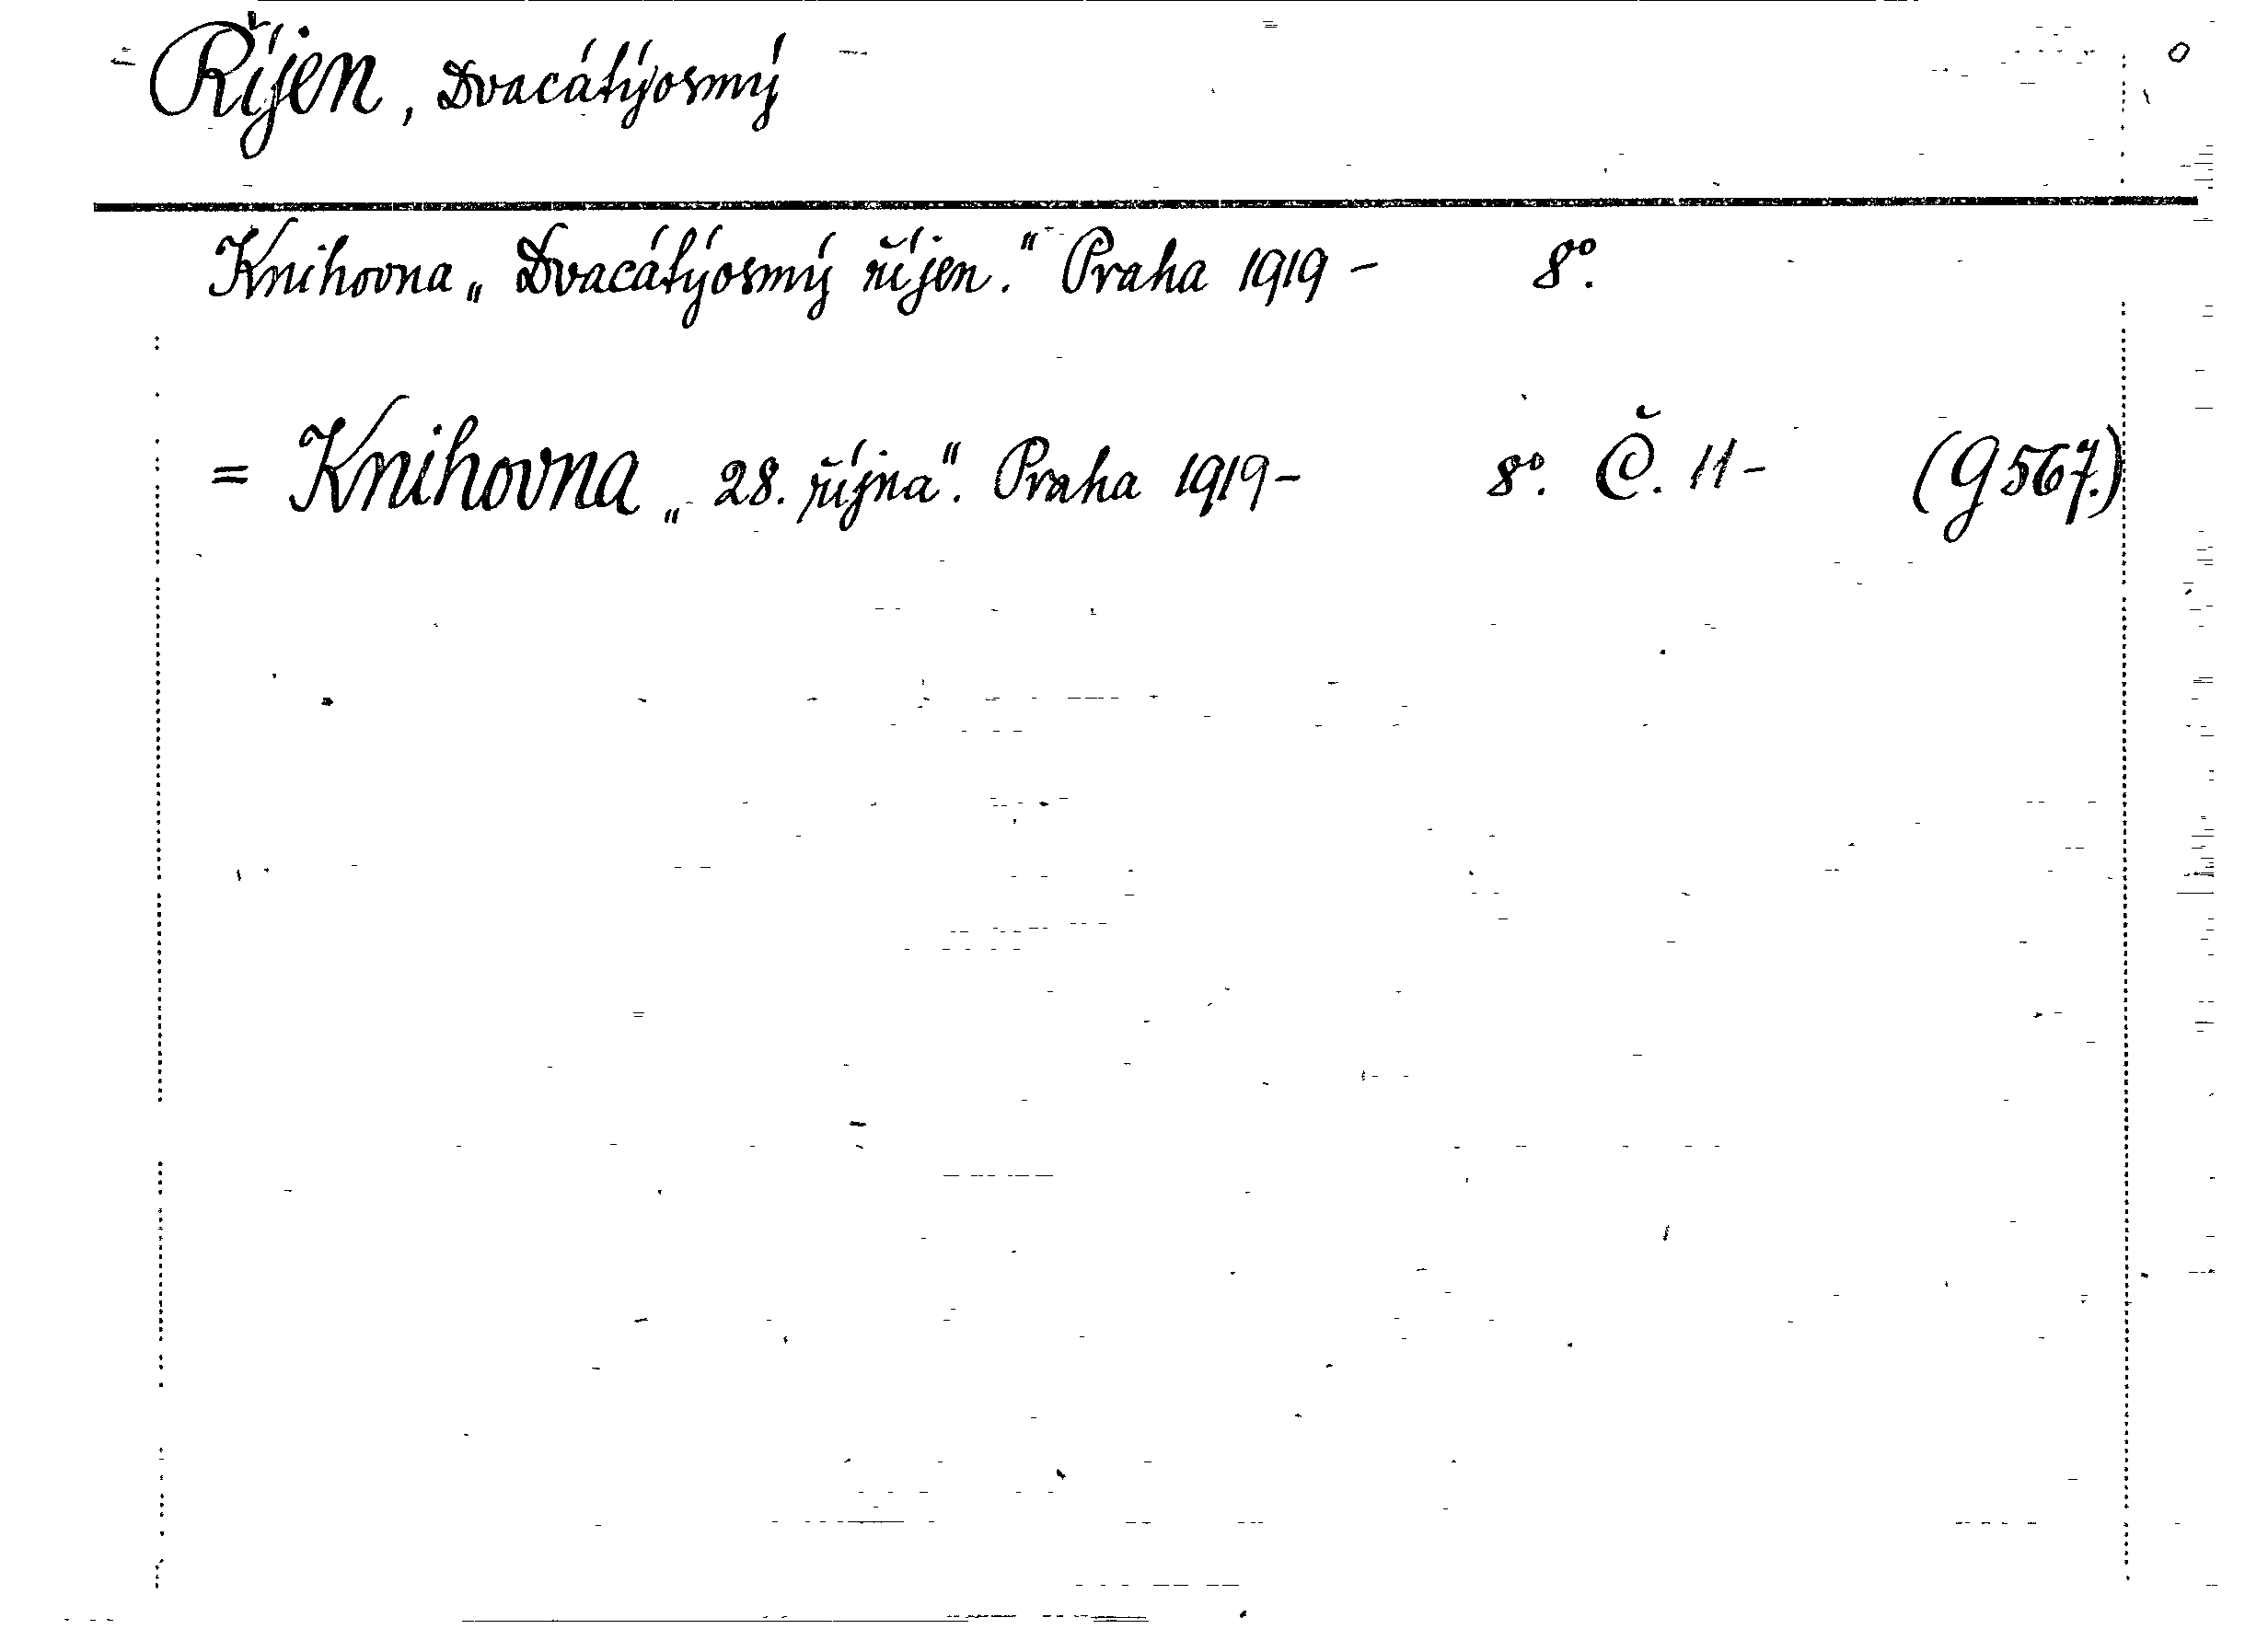 Říjen, Dvacátýosmý
Knihovna „Dvacátýosmý říjen.“ Praha 1919 – 8°.
= Knihovna „28. října“. Praha 1919 – 8°. Č. 11 – (G 567.)